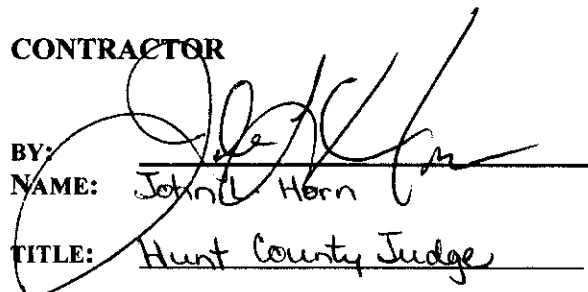 CONTRACTOR
BY:
NAME: John L. Horn
TITLE: Hunt County Judge